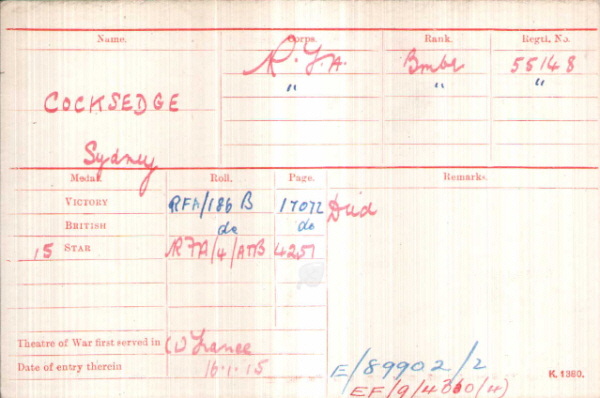 Name. Corps. Rank. Regtl. No.
R.F.A. Bmbr 55148
" " "
COCKSEDGE
Sydney
Medal. Roll. Page. Remarks.
VICTORY RFA/186 B 17072 Died
BRITISH do do
15 STAR RFA/4/ATTB 4257
Theatre of War first served in (1) France
Date of entry therein 16.1.15
E/89902/2
EF/9/4360/4)
K. 1380.